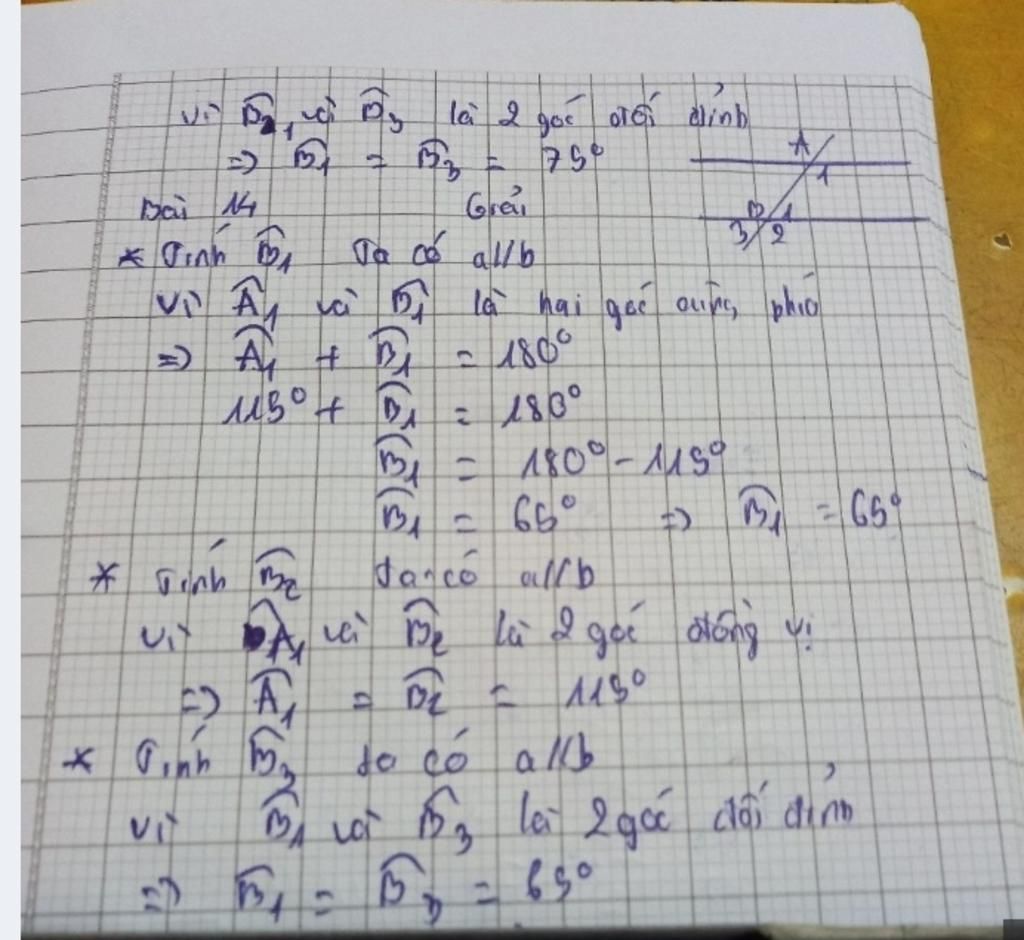 Vì B̂1 và B̂3 là 2 góc đối đỉnh
=> B̂1 = B̂3 = 75°
A
1
B 1
3 2
Bài 14 Giải
* Tính B̂1 Ta có a//b
Vì Â1 và B̂1 là hai góc phía
=> Â1 + B̂1 = 180°
115° + B̂1 = 180°
B̂1 = 180° - 115°
B̂1 = 65° => B̂1 = 65°
* Tính B̂2 Ta có a//b
Vì Â1 và B̂2 là 2 góc đồng vị
=> Â1 = B̂2 = 115°
* Tính B̂3 ta có a//b
Vì B̂1 và B̂3 là 2 góc đối đỉnh
=> B̂1 = B̂3 = 65°